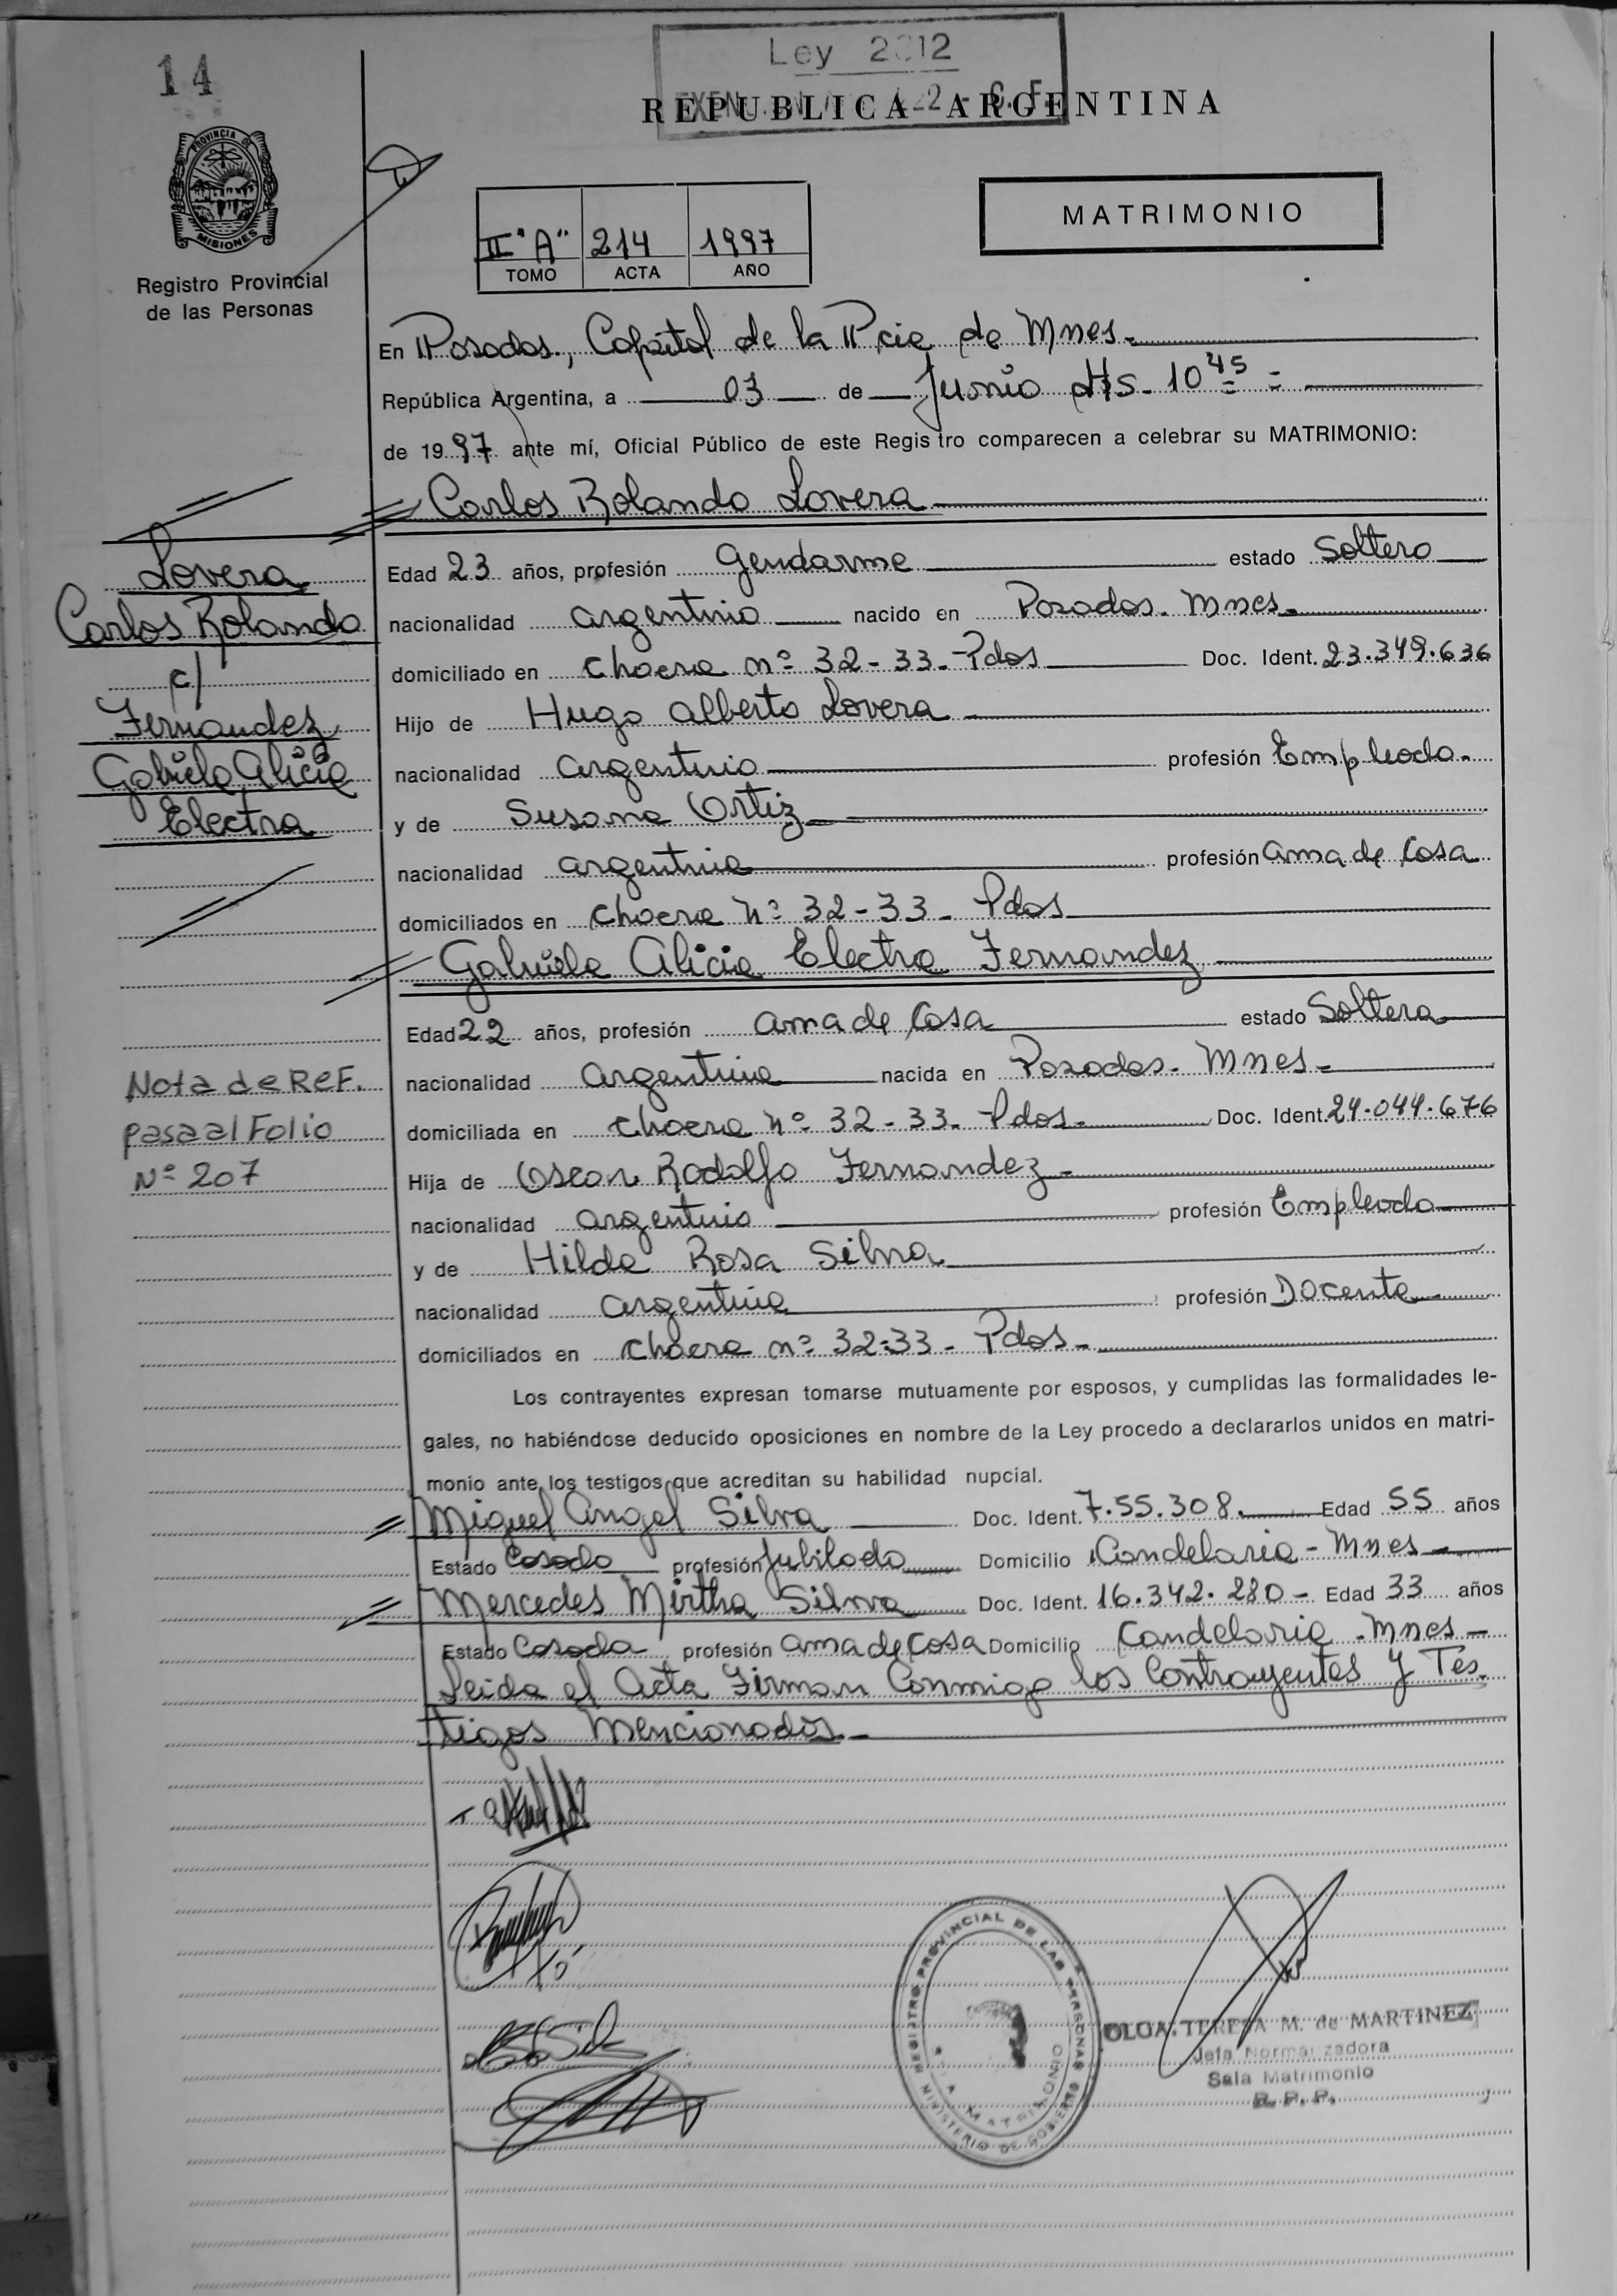 14
Ley 2012
REPUBLICA ARGENTINA
PROVINCIA DE
MISIONES
Registro Provincial
de las Personas
II "A" 214 1997
TOMO ACTA AÑO
MATRIMONIO
En Posadas, Capital de la Pcia de Mnes.
República Argentina, a 03 de Junio Hs. 10 45
de 1997 ante mí, Oficial Público de este Registro comparecen a celebrar su MATRIMONIO:
Carlos Rolando Lovera
Lovera
Carlos Rolando
c/
Fernandez
Gabriela Alicia
Electra
Edad 23 años, profesión Gendarme estado Soltero
nacionalidad argentino nacido en Posadas. Mnes.
domiciliado en chacra nº 32-33- Pdas Doc. Ident. 23.349.636
Hijo de Hugo Alberto Lovera
nacionalidad argentino profesión Empleado.
y de Susana Ortiz
nacionalidad argentina profesión ama de Casa
domiciliados en chacra nº 32-33- Pdas
Gabriela Alicia Electra Fernandez
Edad 22 años, profesión ama de Casa estado Soltera
nacionalidad argentina nacida en Posadas. Mnes.
domiciliada en chacra nº 32-33- Pdas. Doc. Ident. 24.044.676
Nota de REF.
pasa al Folio
Nº 207
Hija de Oscar Rodolfo Fernandez
nacionalidad argentino profesión Empleado
y de Hilda Rosa Silva
nacionalidad argentina profesión Docente
domiciliados en chacra nº 32-33- Pdas.
Los contrayentes expresan tomarse mutuamente por esposos, y cumplidas las formalidades le-
gales, no habiéndose deducido oposiciones en nombre de la Ley procedo a declararlos unidos en matri-
monio ante los testigos que acreditan su habilidad nupcial.
Miguel Angel Silva Doc. Ident. 7.55.308. Edad 55 años
Estado Casado profesión Jubilado Domicilio Candelaria - Mnes
Mercedes Mirtha Silva Doc. Ident. 16.342.280 - Edad 33 años
Estado Casada profesión ama de Casa Domicilio Candelaria - Mnes -
Leida el Acta Firman Conmigo los Contrayentes y Tes-
tigos Mencionados.
REGISTRO PROVINCIAL DE LAS PERSONAS
MINISTERIO DE GOBIERNO
SALA MATRIMONIO
OLGA TERESA M. de MARTINEZ
Jefa Normalizadora
Sala Matrimonio
R. P. P.